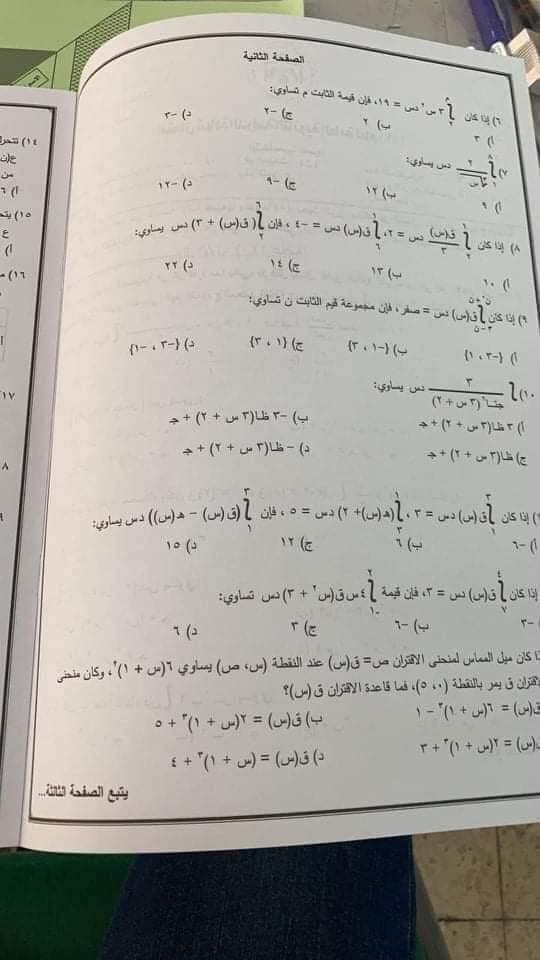 الصفحة الثانية
٦) إذا كان ∫ ٣ س٢ دس = ١٩، فإن قيمة الثابت م تساوي:
أ) ٣ ب) ٢ ج) -٢ د) -٣
٧) ∫ ٢ دس يساوي:
أ) ٩ ب) ١٢ ج) -٩ د) -١٢
٨) إذا كان ∫ ق(س)/٣ دس = ٢، ∫ ق(س) دس = -٤، فإن ∫ (ق(س) + ٣) دس يساوي:
أ) ١٠ ب) ١٣ ج) ١٤ د) ٢٢
٩) إذا كان ∫ ق(س) دس = صفر، فإن مجموعة قيم الثابت ن تساوي:
أ) {-٣، ١} ب) {-١، ٣} ج) {١، ٣} د) {-٣، -١}
١٠) ∫ ٣/جتا٢(٣ س + ٢) دس يساوي:
أ) ٣ ظا(٣ س + ٢) + جـ ب) -٣ ظا(٣ س + ٢) + جـ
ج) ظا(٣ س + ٢) + جـ د) - ظا(٣ س + ٢) + جـ
) إذا كان ∫ ق(س) دس = ٣، ∫ (هـ(س) + ٢) دس = ٥، فإن ∫ (ق(س) - هـ(س)) دس يساوي:
أ) -٦ ب) ٦ ج) ١٢ د) ١٥
إذا كان ∫ ق(س) دس = ٣، فإن قيمة ∫ ٤ س ق(س٢ + ٣) دس تساوي:
-٣ ب) -٦ ج) ٣ د) ٦
ذا كان ميل المماس لمنحنى الاقتران ص = ق(س) عند النقطة (س، ص) يساوي ٦(س + ١)٢، وكان منحنى
قتران ق يمر بالنقطة (٠، ٥)، فما قاعدة الاقتران ق(س)؟
ق(س) = ٦(س + ١)٣ - ١ ب) ق(س) = ٢(س + ١)٣ + ٥
(س) = ٢(س + ١)٣ + ٣ د) ق(س) = (س + ١)٣ + ٤
يتبع الصفحة الثالثة...
١٤) تتحرك
من
أ) ٦
١٥) يتحر
ع
أ)
١٦)
١٧)
٨
٩